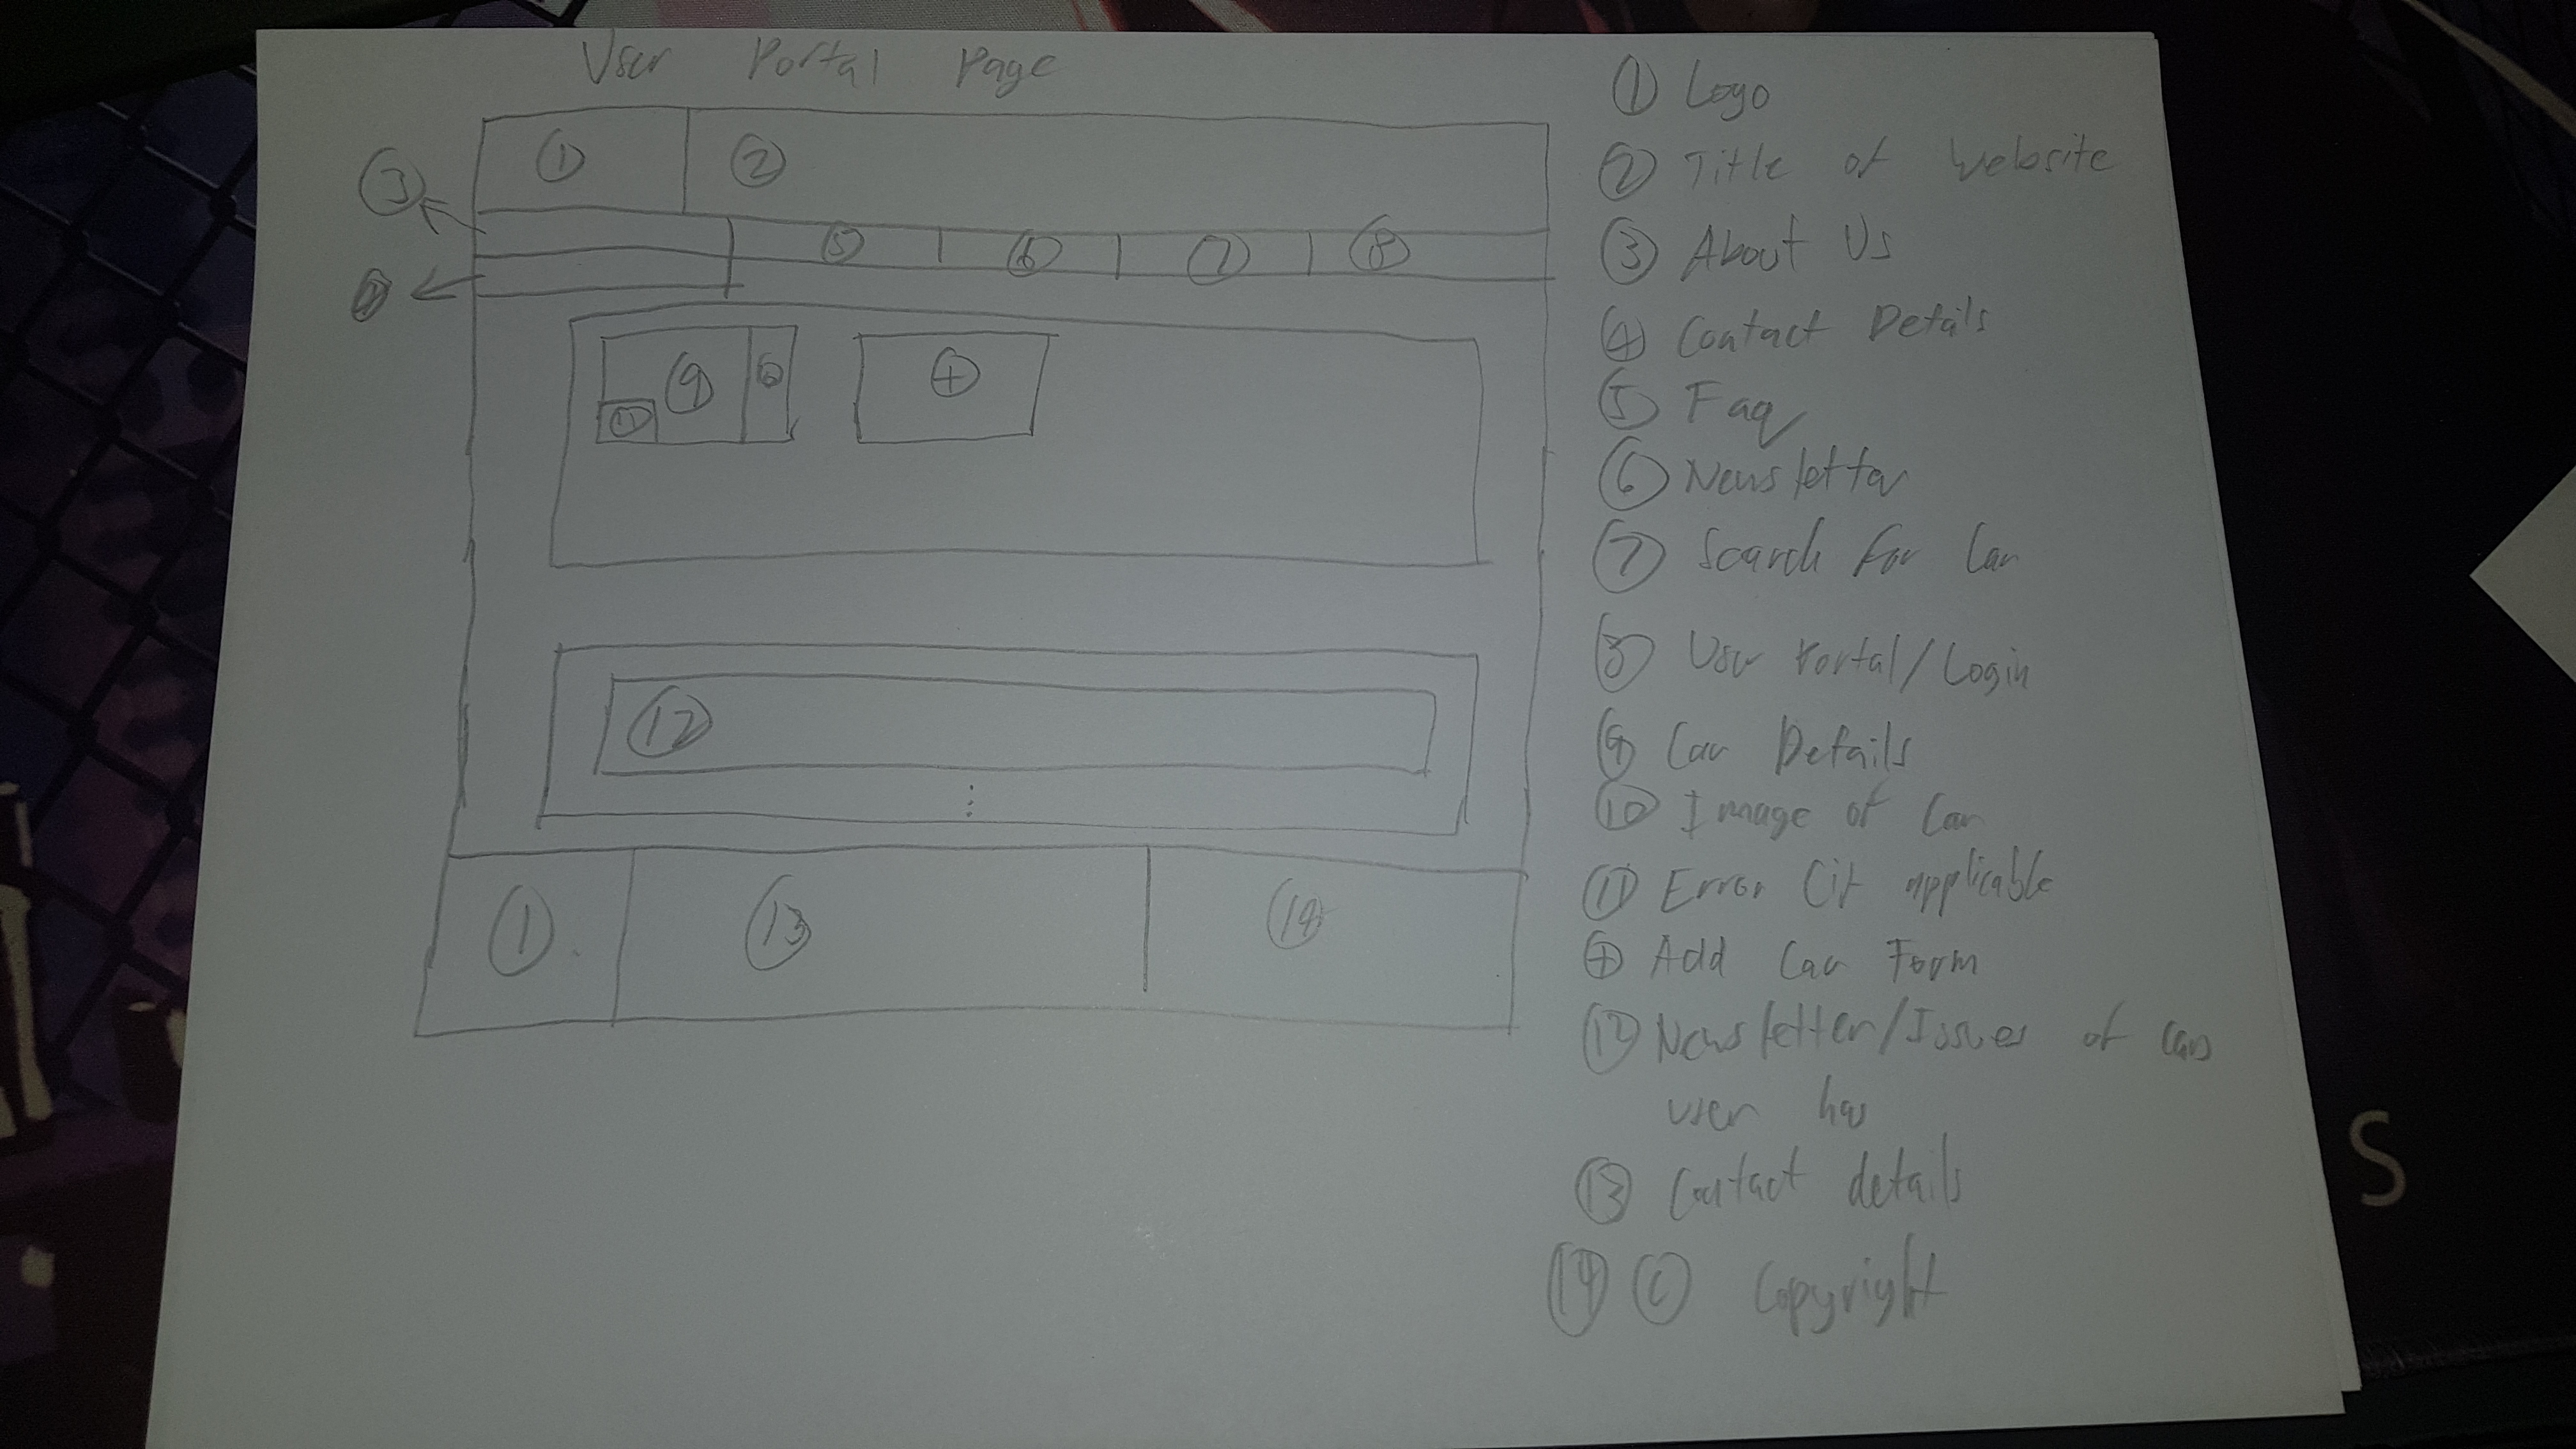 User Portal Page
① ②
③
⑤ ⑥ ⑦ ⑧
⑨ ⑩ +
⑪
⑫
① ⑬ ⑭
① Logo
② Title of Website
③ About Us
④ Contact Details
⑤ Faq
⑥ Newsletter
⑦ Search for Car
⑧ User Portal/Login
⑨ Car Details
⑩ Image of Car
⑪ Error (if applicable
+ Add Car Form
⑫ Newsletter/Issues of cars
user has
⑬ Contact details
⑭ © Copyright
S